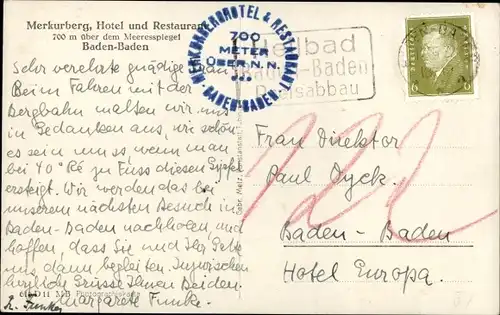 Merkurberg, Hotel und Restaurant
700 m über dem Meeresspiegel
Baden-Baden
MERKURBERGHOTEL & RESTAURANT
BADEN-BADEN
700
METER
ÜBER N.N.
Heilbad
Baden-Baden
Preisabbau
6
6
Sehr verehrte gnädige Frau!
Beim Fahren mit der
Bergbahn malten wir uns
in Gedanken aus, wie schön
es sein muss, wenn man
bei 40° Ré zu Fuss diesen Gipfel
ersteigt. Wir werden das bei
unserem nächsten Besuch in
Baden-Baden nachholen und
hoffen, dass Sie und Ihr Gatte
uns dann begleiten. Inzwischen
herzliche Grüsse Ihnen Beiden.
Margarete Funke.
Funke
Photographiekarte
Gebr. Metz,
Frau Direktor
Paul Dyck.
Baden-Baden
Hotel Europa.
122